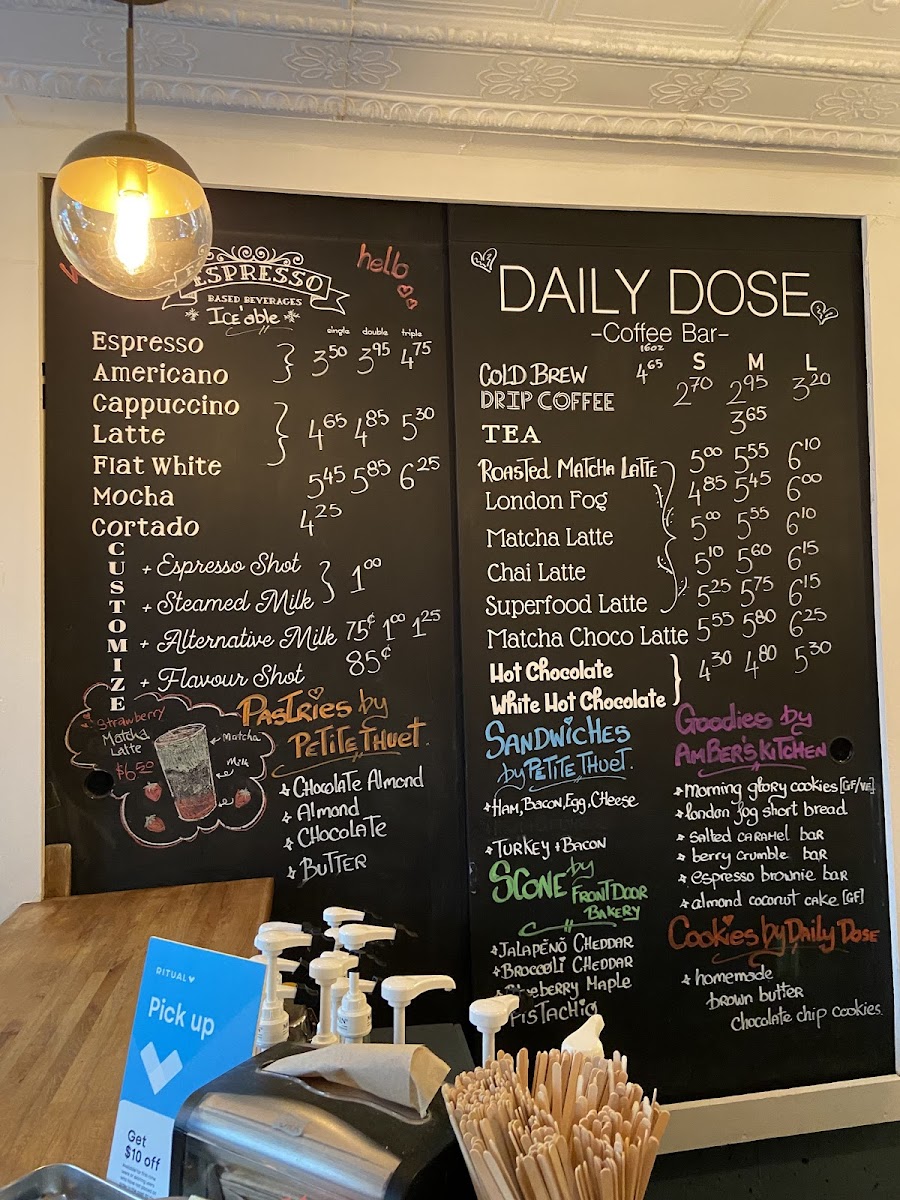 ESPRESSO
BASED BEVERAGES
Ice'able
hello
single double triple
Espresso
Americano
3.50 3.95 4.75
Cappuccino
Latte
Flat White
4.65 4.85 5.30
Mocha 5.45 5.85 6.25
Cortado 4.25
CUSTOMIZE
+ Espresso Shot
+ Steamed Milk
1.00
+ Alternative Milk 75¢ 1.00 1.25
+ Flavour Shot 85¢
Strawberry
Matcha
Latte
$6.50
Matcha
Milk
Pastries by
Petite Thuet.
Chocolate Almond
Almond
Chocolate
Butter
DAILY DOSE
-Coffee Bar-
16oz S M L
Cold Brew 4.65
DRIP COFFEE 2.70 2.95 3.20
TEA 3.65
Roasted Matcha Latte 5.00 5.55 6.10
London Fog 4.85 5.45 6.00
Matcha Latte 5.00 5.55 6.10
Chai Latte 5.10 5.60 6.15
Superfood Latte 5.25 5.75 6.15
Matcha Choco Latte 5.55 5.80 6.25
Hot Chocolate
White Hot Chocolate
4.30 4.80 5.30
Sandwiches
by Petite Thuet.
Ham, Bacon, Egg, Cheese
Turkey + Bacon
Scone by
Front Door
Bakery
Jalapeño Cheddar
Broccoli Cheddar
Blueberry Maple
Pistachio
Goodies by
Amber's Kitchen
morning glory cookies [GF/VE]
london fog short bread
salted caramel bar
berry crumble bar
espresso brownie bar
almond coconut cake [GF]
Cookies by Daily Dose
homemade
brown butter
chocolate chip cookies.
RITUAL
Pick up
Get
$10 off